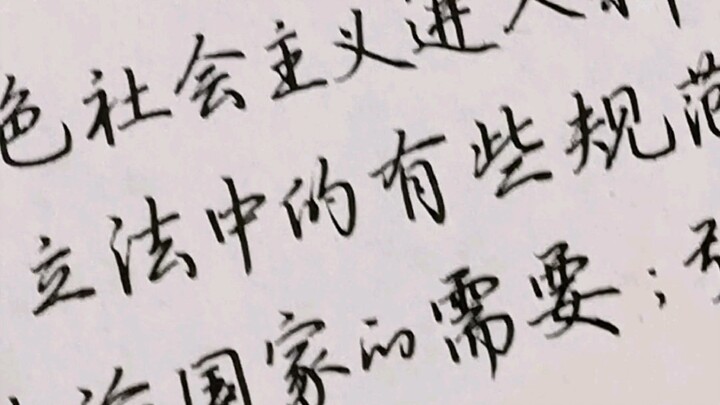 色社会主义进入
立法中的有些规范
治国家的需要；